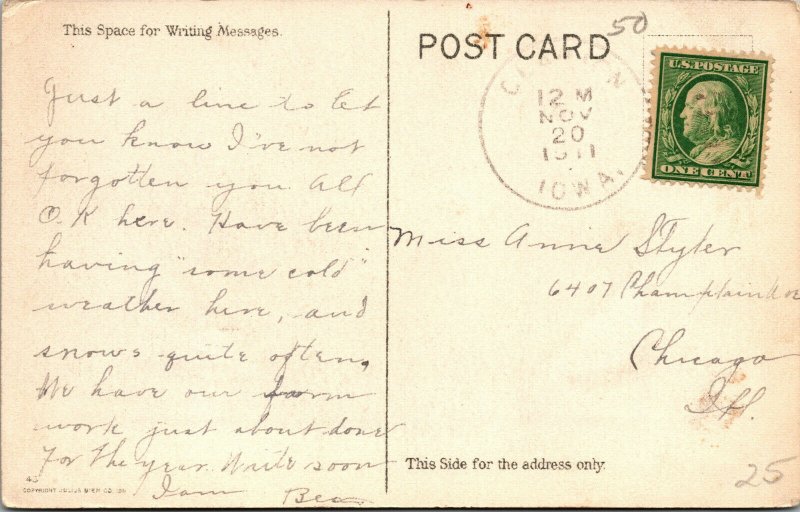 This Space for Writing Messages.
Just a line to let
you know I've not
forgotten you. All
O.K here. Have been
having "some cold"
weather here, and
snows quite often,
We have our farm
work just about done
For the year. Write soon
I am Bea
45
COPYRIGHT JULIUS BIEN CO.
POST CARD
50
U.S. POSTAGE
ONE CENT
12 M
NOV
20
1911
IOWA.
Miss Anna Styler
6407 Champlain Ave
Chicago
Ill.
This Side for the address only.
25